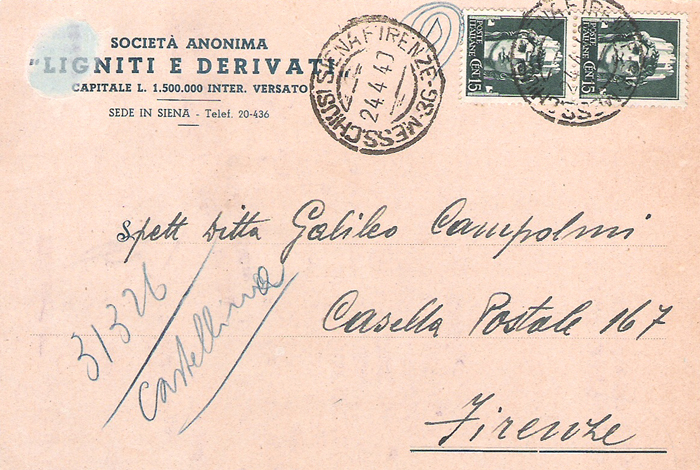 SOCIETÀ ANONIMA
"LIGNITI E DERIVATI
CAPITALE L. 1.500.000 INTER. VERSATO
SEDE IN SIENA - Telef. 20-436
CHIUSI SIENA FIRENZE 38 MESS.
24.4.40
POSTE ITALIANE
CENT 15
POSTE ITALIANE
CENT 15
Spett Ditta Galileo Campolmi
Casella Postale 167
Firenze
31326
Castellina